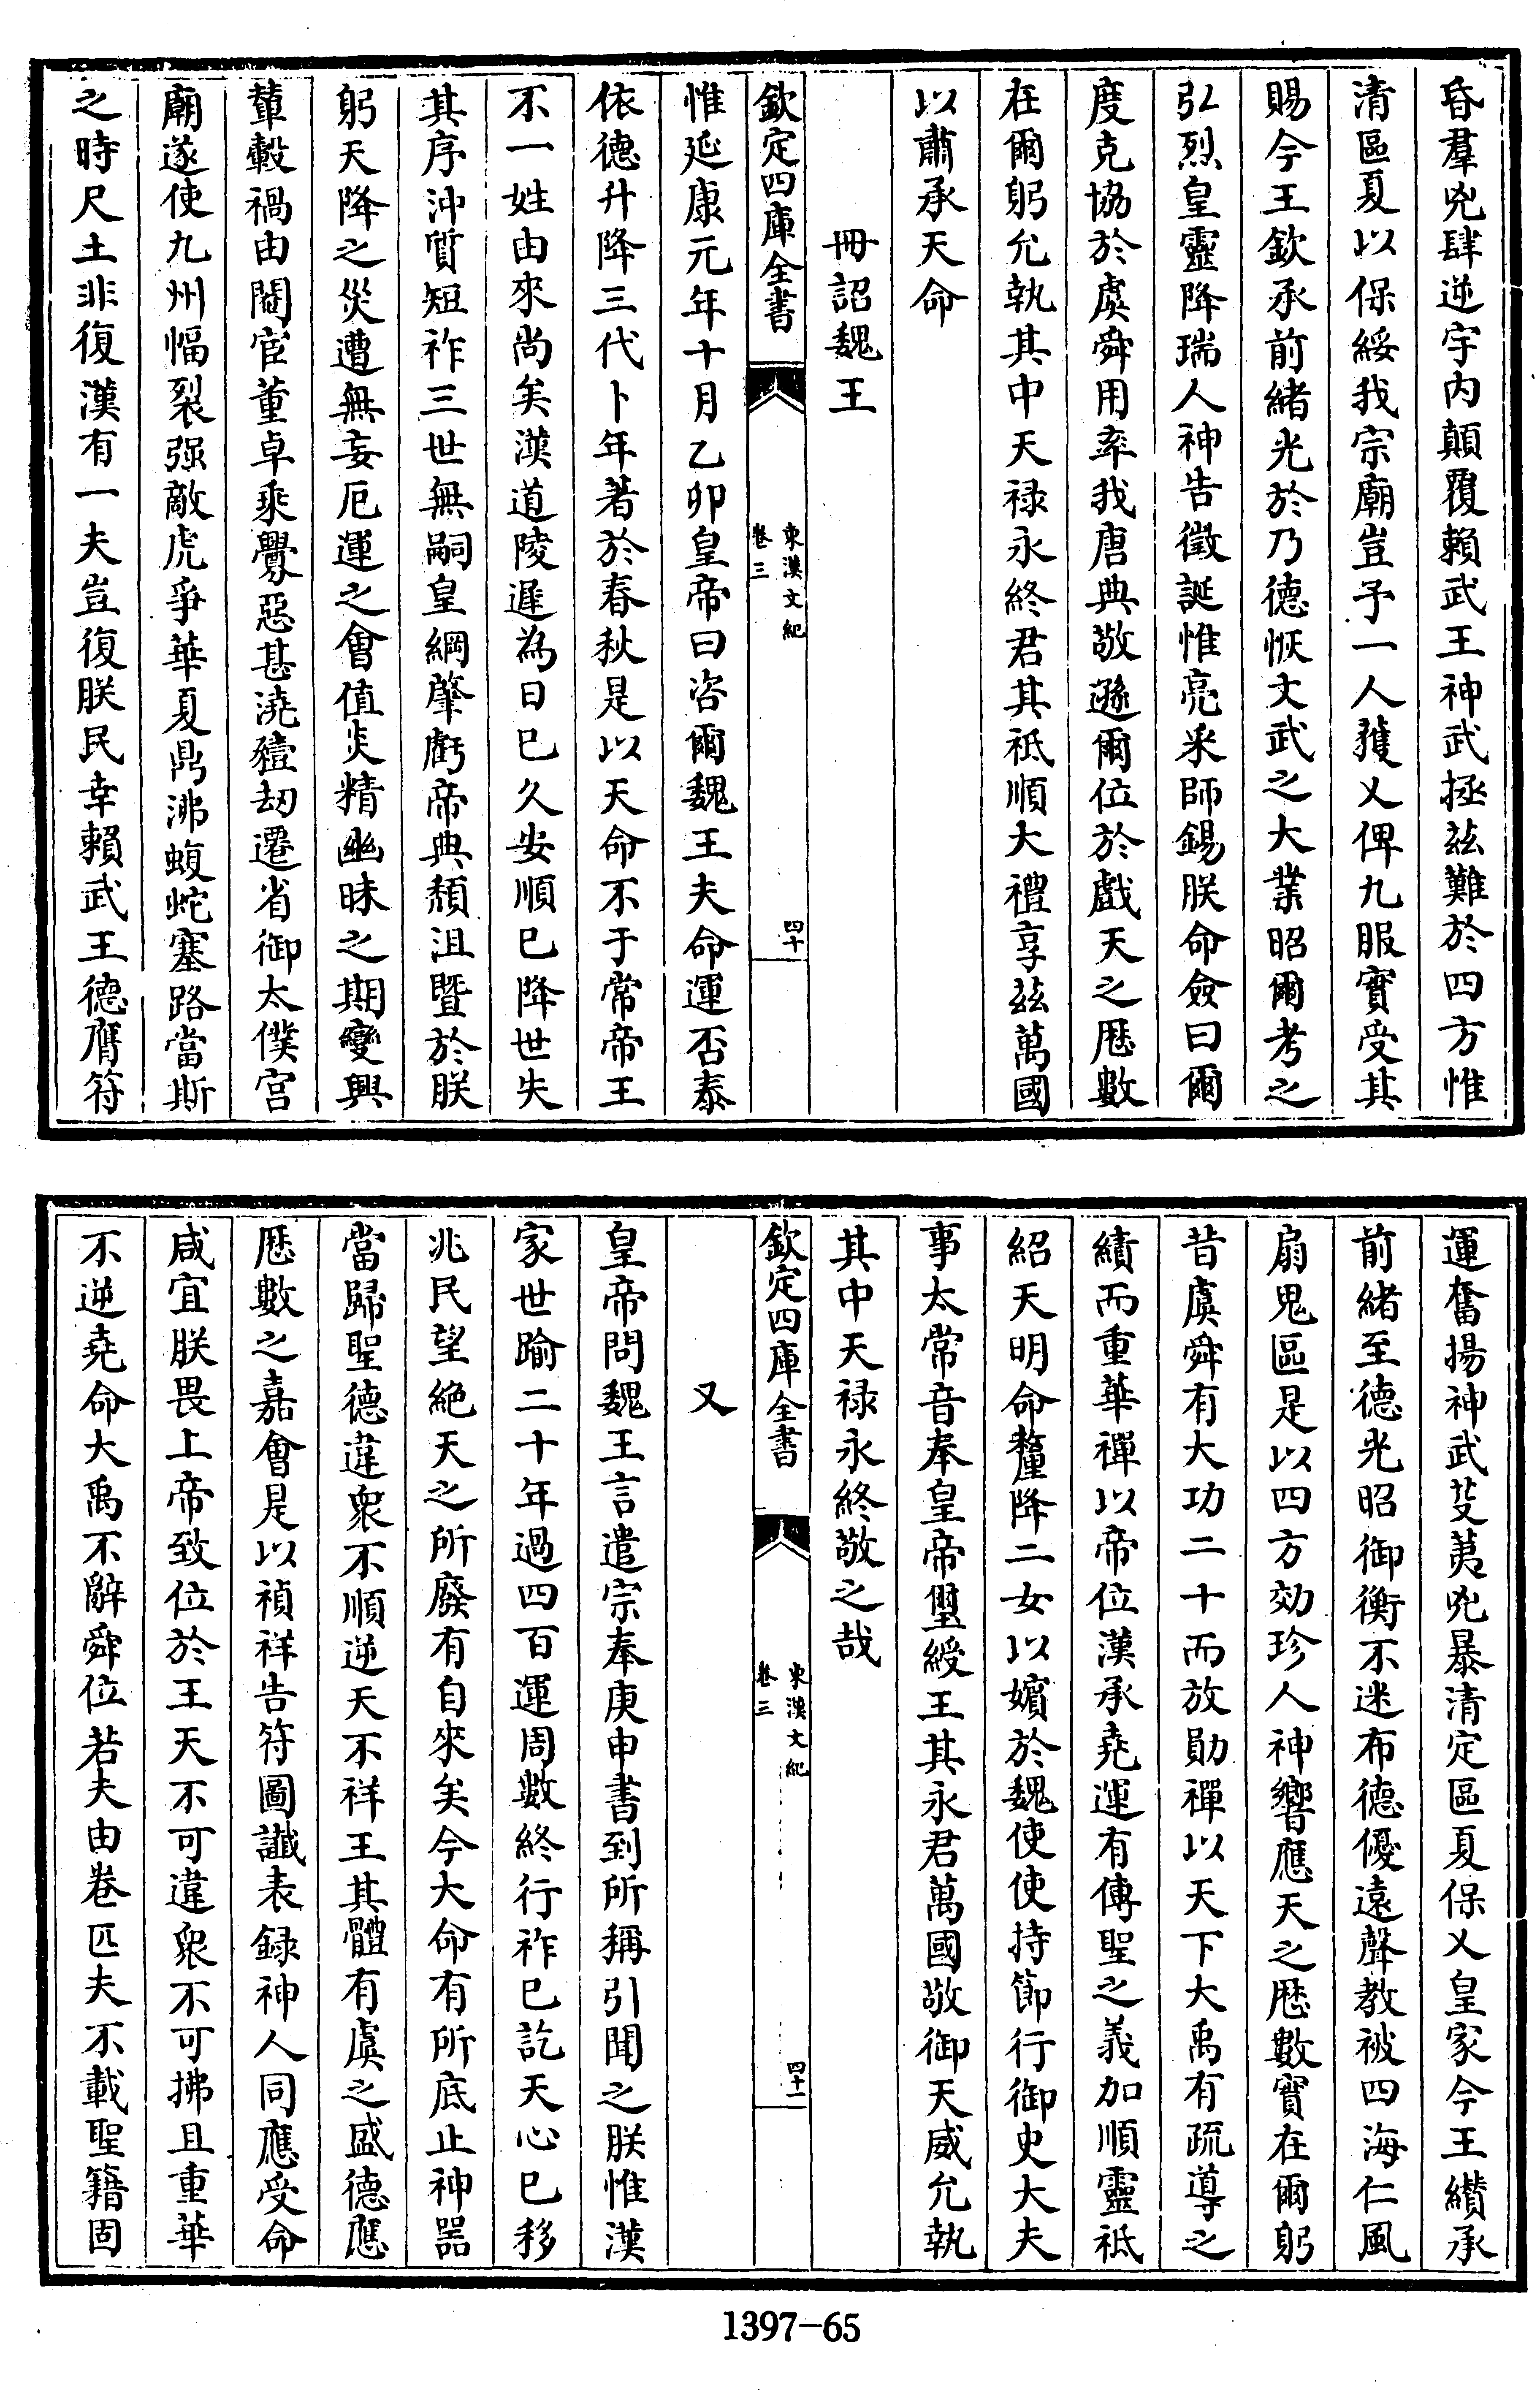 昏羣兇肆逆宇内顛覆賴武王神武拯兹難於四方惟
清區夏以保綏我宗廟豈予一人獲乂俾九服實受其
賜今王欽承前緒光於乃德恢文武之大業昭爾考之
弘烈皇靈降瑞人神告徵誕惟亮采師錫朕命僉曰爾
度克協於虞舜用率我唐典敬遜爾位於戲天之厯數
在爾躬允執其中天禄永終君其祗順大禮享兹萬國
以肅承天命
冊詔魏王
欽定四庫全書
東漢文紀
卷三
四十
惟延康元年十月乙卯皇帝曰咨爾魏王夫命運否泰
依德升降三代卜年著於春秋是以天命不于常帝王
不一姓由來尚矣漢道陵遲為日已久安順已降世失
其序沖質短祚三世無嗣皇綱肇虧帝典頽沮暨於朕
躬天降之災遭無妄厄運之會值炎精幽昧之期變興
輦轂禍由閹宦董卓乘釁惡甚澆豷劫遷省御太僕宫
廟遂使九州幅裂强敵虎爭華夏鼎沸蝮蛇塞路當斯
之時尺土非復漢有一夫豈復朕民幸賴武王德膺符
運奮揚神武芟荑兇暴清定區夏保乂皇家今王纘承
前緒至德光昭御衡不迷布德優遠聲教被四海仁風
扇鬼區是以四方効珍人神響應天之厯數實在爾躬
昔虞舜有大功二十而放勛禪以天下大禹有疏導之
績而重華禪以帝位漢承堯運有傳聖之義加順靈祗
紹天明命釐降二女以嬪於魏使使持節行御史大夫
事太常音奉皇帝璽綬王其永君萬國敬御天威允執
其中天禄永終敬之哉
欽定四庫全書
東漢文紀
卷三
四十一
又
皇帝問魏王言遣宗奉庚申書到所稱引聞之朕惟漢
家世踰二十年過四百運周數終行祚已訖天心已移
兆民望絶天之所廢有自來矣今大命有所底止神器
當歸聖德違衆不順逆天不祥王其體有虞之盛德應
厯數之嘉會是以禎祥告符圖讖表録神人同應受命
咸宜朕畏上帝致位於王天不可違衆不可拂且重華
不逆堯命大禹不辭舜位若夫由卷匹夫不載聖籍固
1397-65